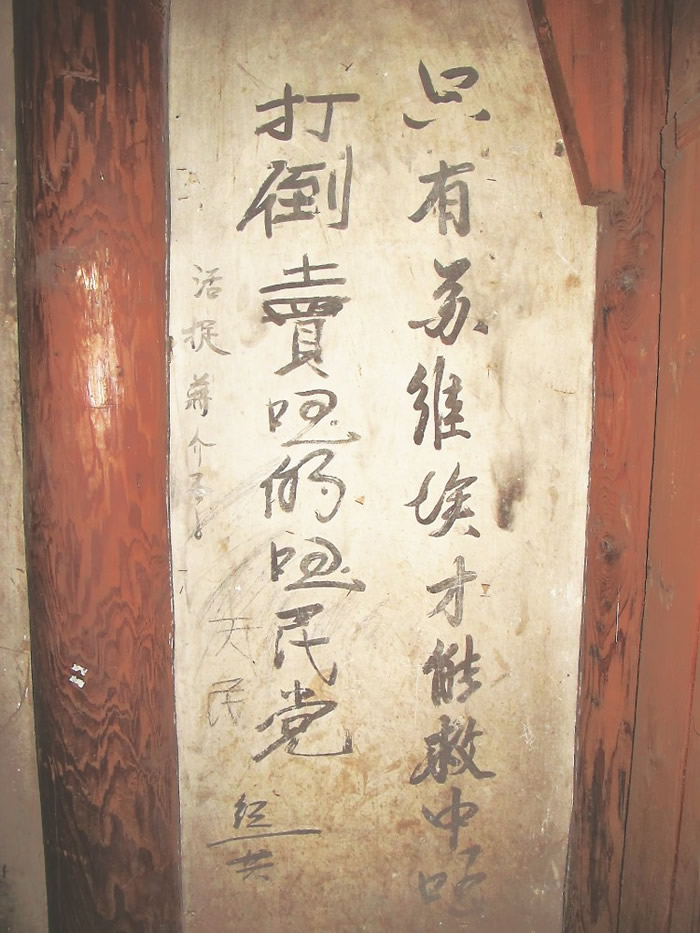 只有苏维埃才能救中国
打倒賣国的国民党
活捉蒋介石
天民